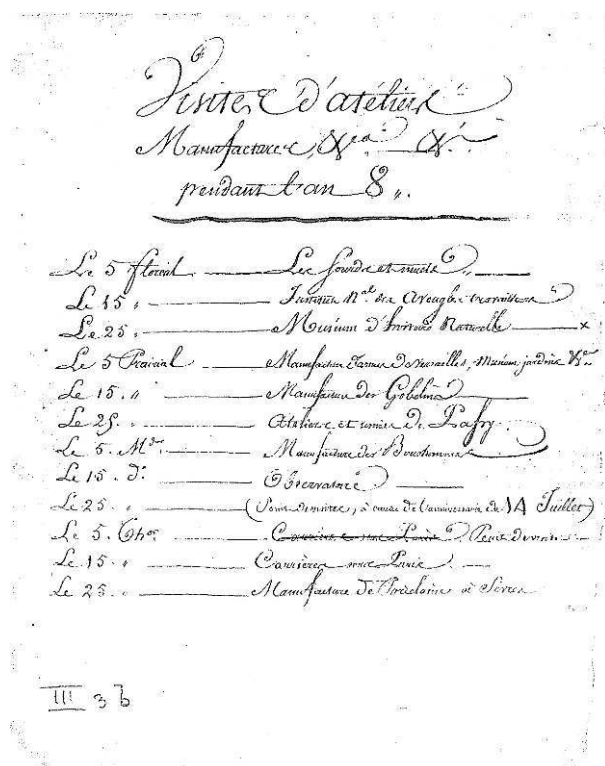 Visites d'atéliers
Manufactures, &ca &a
pendant l'an 8 „.
Le 5 floréal. Les Sourds et muets
Le 15 „ Institution Nal. des Aveugles travailleurs
Le 25. Muséum d'histoire Naturelle x
Le 5 Prairial Manufacture d'armes de Versailles, Muséum, jardins &ca
Le 15. „ Manufacture des Gobelins
Le 25. Atéliers et usines de
Le 5. Mor. Manufacture des
Le 15. do. Observatoire
Le 25 „ (Point de visites, à cause de l'anniversaire du 14 Juillet)
Le 5. Thor. Carrières sous Paris Point de visite
Le 15. „ Carrières sous Paris.
Le 25 „ Manufacture de Porcelaine à Sèvres
III 3 b